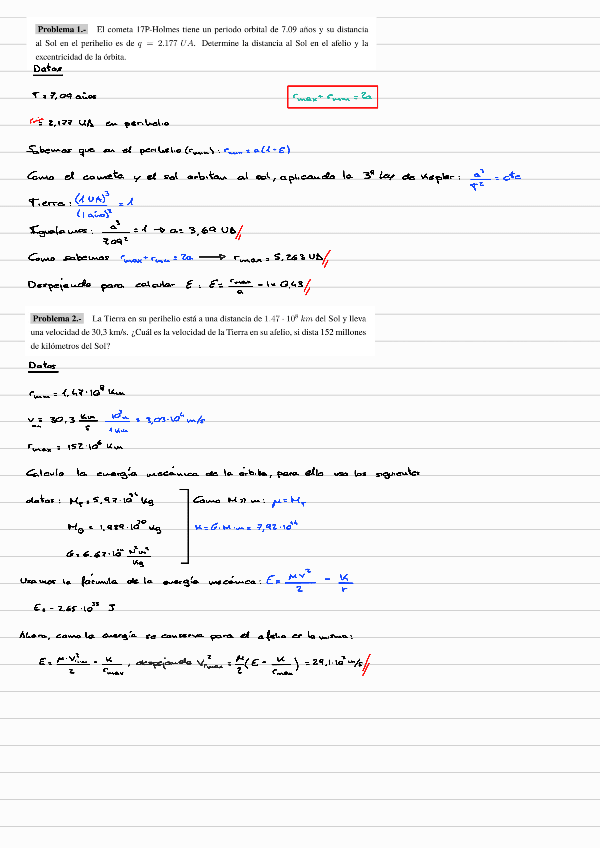 Problema 1.- El cometa 17P-Holmes tiene un periodo orbital de 7.09 años y su distancia
al Sol en el perihelio es de q = 2.177 UA. Determine la distancia al Sol en el afelio y la
excentricidad de la órbita.
Datos
T = 7,09 años
r_max + r_min = 2a
r_min = 2,177 UA en perihelio
Sabemos que en el perihelio (r_min): r_min = a(1-ε)
Como el cometa y el sol orbitan al sol, aplicando la 3ª Ley de Kepler: a³/T² = cte
Tierra: (1 UA)³/(1 año)² = 1
Igualamos: a³/7.09² = 1 → a = 3,69 UA
Como sabemos r_max + r_min = 2a → r_max = 5,263 UA
Despejando para calcular ε: ε = r_max/a - 1 = 0,43
Problema 2.- La Tierra en su perihelio está a una distancia de 1.47 · 10⁸ km del Sol y lleva
una velocidad de 30,3 km/s. ¿Cuál es la velocidad de la Tierra en su afelio, si dista 152 millones
de kilómetros del Sol?
Datos
r_min = 1,47·10⁸ Km
v = 30,3 Km/s 10³m/1Km = 3,03·10⁴ m/s
r_max = 152·10⁶ Km
Calculo la energía mecánica de la órbita, para ello uso los siguientes
datos: M_T = 5,97·10²⁴ Kg Como M >> m: μ = M_T
M_⊙ = 1,989·10³⁰ Kg K = G·M·m = 7,92·10⁴⁴
G = 6.67·10⁻¹¹ N²m²/Kg
Usamos la fórmula de la energía mecánica: E = μv²/2 - K/r
E = -2.65·10³³ J
Ahora, como la energía se conserva para el afelio es la misma:
E = μ·V²/2 - K/r_max, despejando V²r_max = μ/2 (E - K/r_max) = 29,1·10³ m/s